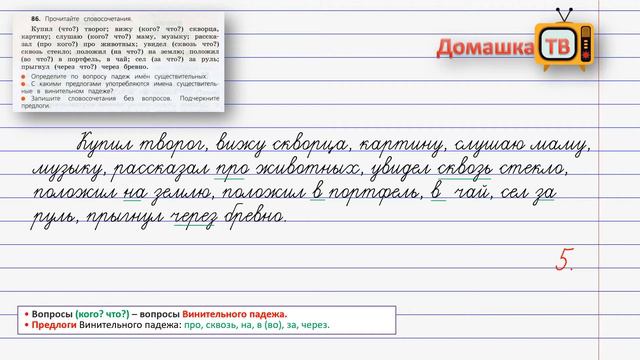 86. Прочитайте словосочетания.
Купил (что?) творог; вижу (кого? что?) скворца,
картину; слушаю (кого? что?) маму, музыку; расска-
зал (про кого?) про животных; увидел (сквозь что?)
сквозь стекло; положил (на что?) на землю; положил
(во что?) в портфель, в чай; сел (за что?) за руль;
прыгнул (через что?) через бревно.
Определите по вопросу падеж имён существительных.
С какими предлогами употребляются имена существитель-
ные в винительном падеже?
Запишите словосочетания без вопросов. Подчеркните
предлоги.
Домашка ТВ
Купил творог, вижу скворца, картину, слушаю маму,
музыку, рассказал про животных, увидел сквозь стекло,
положил на землю, положил в портфель, в чай, сел за
руль, прыгнул через бревно.
5.
• Вопросы (кого? что?) – вопросы Винительного падежа.
• Предлоги Винительного падежа: про, сквозь, на, в (во), за, через.